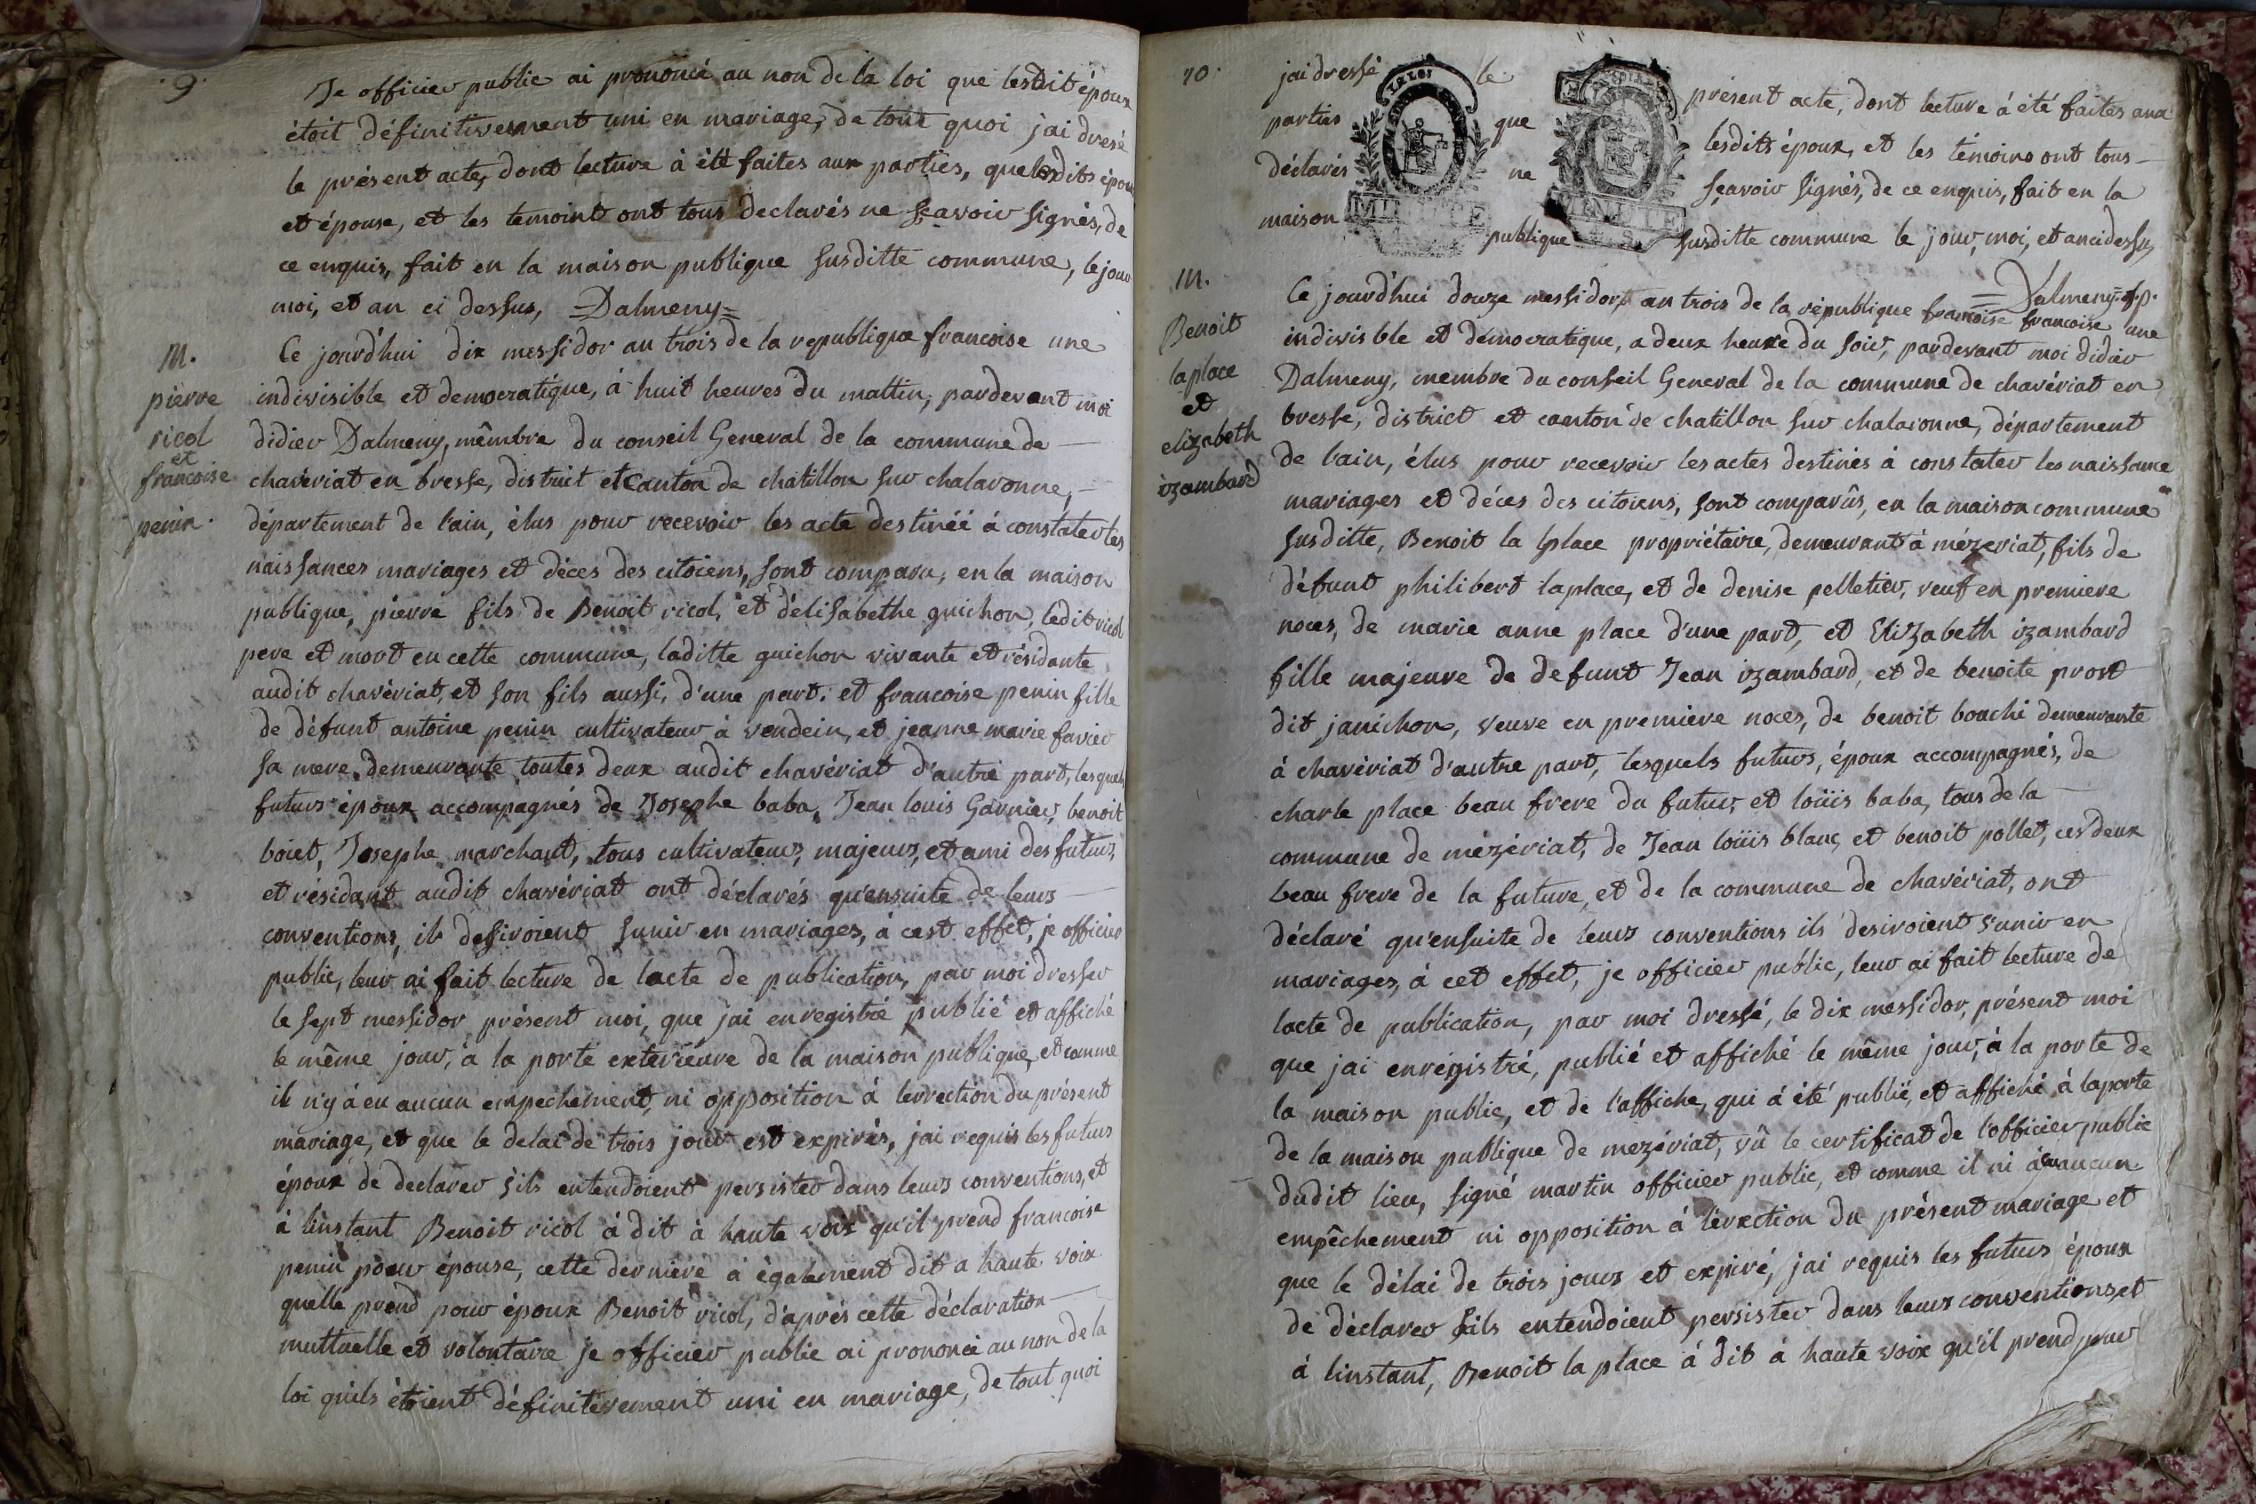 9.
Je officier public ai prononcé au non de la loi que lesdit époux
étoit définitivement uni en mariage, de tout quoi jai dresé
le présent acte, dont lecture à été faites aux parties, que lesdits époux
et épouse, et les temoint ont tous declarés ne sçavoir signés, de
ce enquis, fait en la maison publique susditte commune, le jour
moi, et an ci dessus, Dalmeny
M.
pierre
ricol
et
francoise
penin.
Ce jourd'hui dix messidor au trois de la republique francoise une
indivisible et democratique, à huit heures du mattin, pardevant moi
didier Dalmeny, mêmbre du conseil General de la commune de
chavériat en bresse, distruit et canton de chatillon sur chalaronne,
département de l'ain, élus pour recevoir les acte destinéé à constater les
naissances mariages et déces des citoiens, sont comparu, en la maison
publique, pierre fils de Benoit ricol, et d'élisabethe guichon, ledit ricol
pere et mort en cette commune, laditte guichon vivante et résidante
audit chavériat, et son fils aussi, d'une part. et francoise penin fille
de défunt antoine penin cultivateur à vendein, et jeanne marie favier
sa mere demeurante toutes deux audit chavériat d'autre part, lesquels
futurs époux accompagnés de Josephe baba, Jean louis Garnier, benoit
boiet, Josephe marchant, tous cultivateurs, majeurs, et ami des futurs,
et résidant audit chavériat ont déclarés qu'ensuite de leurs
conventions, ils desiroient sunir en mariages, à cest effet, je officier
public, leur ai fait lecture de lacte de publication, par moi dresser
le sept messidor présent moi, que jai enregistré publié et affiché
le même jour, à la porte exterieure de la maison publique, et comme
il n'y à eu aucun empechement, ni opposition à lerrection du présent
mariage, et que le delai de trois jour est expirés, jai requis les futurs
époux de declarer s'ils entendoient persister dans leurs conventions, et
à linstant Benoit ricol à dit à haute voix qu'il prend francoise
penin pour épouse, cette derniere à également dit a haute voix
quelle prend pour époux Benoit ricol, d'aprés cette déclaration
muttuelle et volontaire je officier public ai prononcé au non de la
loi quils étoient définitivement uni en mariage, de tout quoi
10.
jai dressé le présent acte, dont lecture à été faites aux
parties que lesdits époux, et les témoins ont tous
déclarés ne sçavoir signés, de ce enquis, fait en la
maison publique susditte commune le jour, moi, et an cidessus,
LA LOI
MINUTE
MINUTE
Dalmeny. o.p.
M.
Benoit
laplace
et
elizabeth
izambard
Ce jourd'hui douze messidor, an trois de la république francoise francoise une
indivisible et démocratique, a deux heure du soir, pardevant moi didier
Dalmeny, membre du conseil General de la commune de chavériat en
bresse, district et canton de chatillon sur chalaronne, département
de lain, élus pour recevoir les actes destinés à constater les naissance
mariages et déces des citoiens, sont comparûs, en la maison commune
susditte, Benoit la place propriétaire, demeurant à mézeriat, fils de
défunt philibert laplace, et de denise pelletier, veuf en premiere
noces, de marie anne place d'une part, et Elizabeth izambard
fille majeure de defunt Jean izambard, et de benoite prost
dit janichon, veuve en premiere noces, de benoit bouché demeurante
à chavériat d'autre part, lesquels futurs, époux accompagnés, de
charle place beau frere du futur, et loüis baba, tous de la
commune de mézériat, de Jean loüis blanc, et benoit pollet, ces deux
beau frere de la future, et de la commune de chavériat, ont
déclaré qu'ensuite de leurs conventions ils desiroient s'unir en
mariages, à cet effet, je officier public, leur ai fait lecture de
lacte de publication, par moi dressé, le dix messidor, présent moi
que jai enrégistré, publié et affiché le même jour, à la porte de
la maison public, et de l'affiche, qui à été publié, et affiché à la porte
de la maison publique de mezériat, vû le certificat de l'officier public
dudit lieu, signé martin officier public, et comme il ni à eu aucun
empêchement ni opposition à lérection du présent mariage et
que le délai de trois jours et expiré, jai requis les futurs époux
de déclarer s'ils entendoient persister dans leurs conventions et
à linstant, Benoit la place à dit à haute voix qu'il prend pour